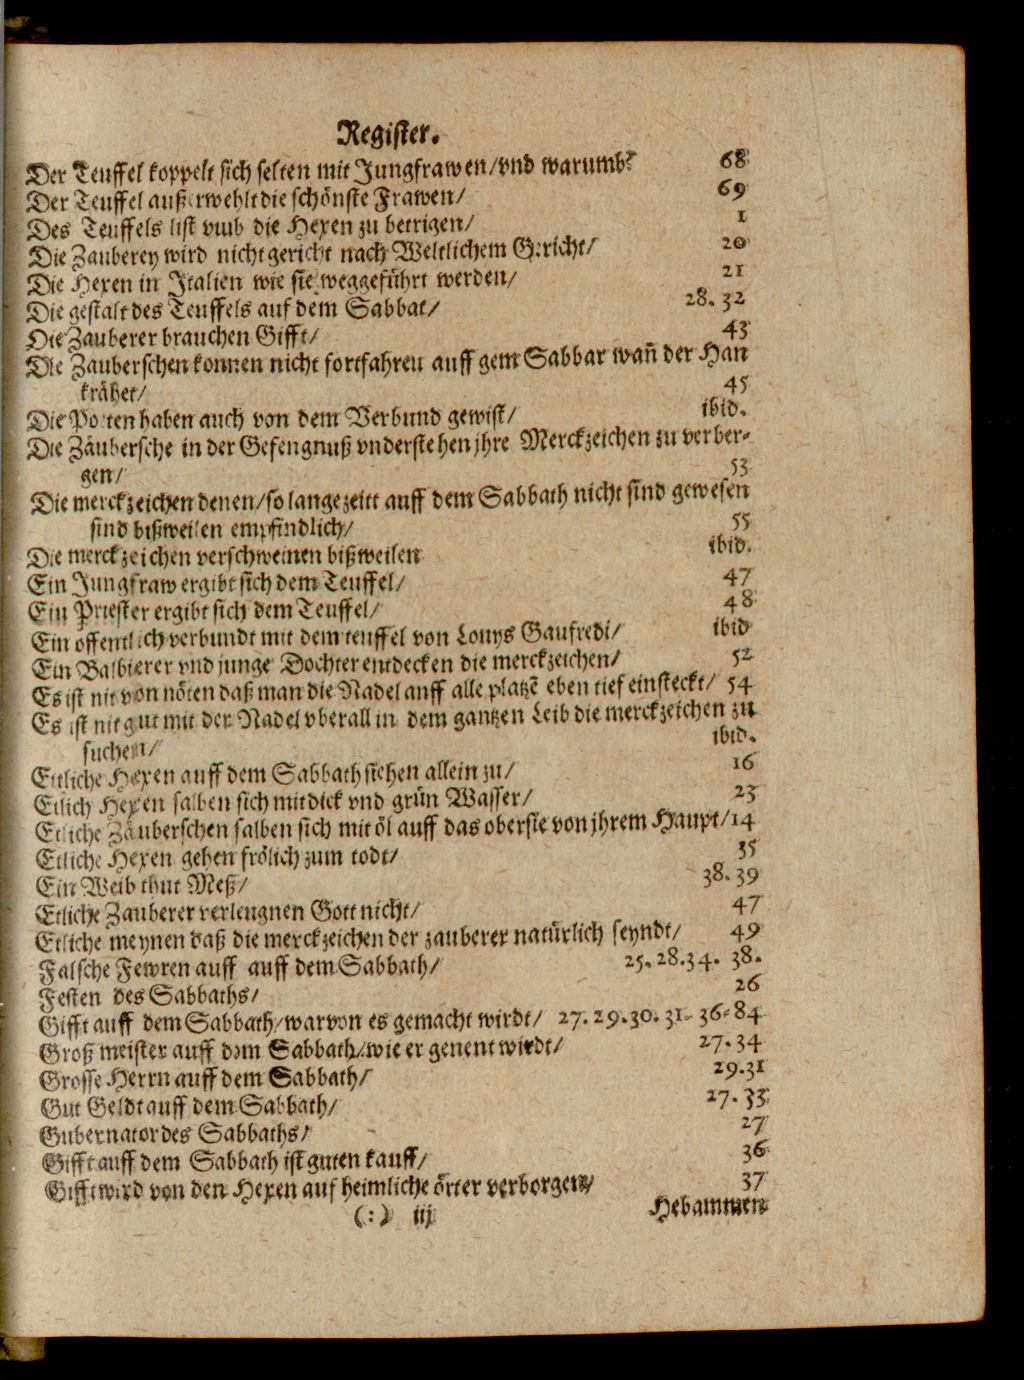 Register.
Der Teuffel koppelt sich selten mit Jungfrawen/vnd warumb? 68
Der Teuffel außerwehlt die schönste Frawen/ 69
Des Teuffels list vmb die Hexen zu betrigen/ 1
Die Zauberey wird nicht gericht nach Weltlichem Gericht/ 20
Die Hexen in Italien wie sie weggeführt werden/ 21
Die gestalt des Teuffels auf dem Sabbat/ 28. 32
Die Zauberer brauchen Gifft/ 43
Die Zauberschen konnen nicht fortfahren auff gem Sabbar wañ der Han
krähet/ 45
Die Poeten haben auch von dem Verbund gewist/ ibid.
Die Zäubersche in der Gefengnuß vnderstehen jhre Merckzeichen zu verber-
gen/ 53
Die merckzeichen denen/so lange zeitt auff dem Sabbath nicht sind gewesen
sind bißweilen empfindlich/ 55
Die merckzeichen verschweinen bißweilen ibid.
Ein Jungfraw ergibt sich dem Teuffel/ 47
Ein Priester ergibt sich dem Teuffel/ 48
Ein offentlich verbundt mit dem teuffel von Louys Gaufredi/ ibid
Ein Balbierer vnd junge Dochter entdecken die merckzeichen/ 52
Es ist nit von nöten daß man die Nadel auff alle platzē eben tief einsteckt/ 54
Es ist nit gut mit der Nadel vberall in dem gantzen Leib die merckzeichen zu
suchen/ ibid.
Etliche Hexen auff dem Sabbath siehen allein zu/ 16
Etlich Hexen salben sich mit dick vnd grün Wasser/ 23
Etliche Zäuberschen salben sich mit öl auff das oberste von jhrem Haupt/14
Etliche Hexen gehen frölich zum todt/ 35
Ein Weib thut Meß/ 38. 39
Etliche Zauberer verleugnen Gott nicht/ 47
Etliche meynen daß die merckzeichen der zauberer natürlich seyndt/ 49
Falsche Fewren auff auff dem Sabbath/ 25. 28. 34. 38.
Festen des Sabbaths/ 26
Gifft auff dem Sabbath/warvon es gemacht wirdt/ 27. 29. 30. 31- 36-84
Groß meister auff dem Sabbath/wie er genent wirdt/ 27. 34
Grosse Herrn auff dem Sabbath/ 29.31
Gut Geldt auff dem Sabbath/ 27. 33
Gubernator des Sabbaths/ 27
Gifft auff dem Sabbath ist guten kauff/ 36
Gifft wird von den Hexen auf heimliche örter verborgen/ 37
(:) iij Hebammen